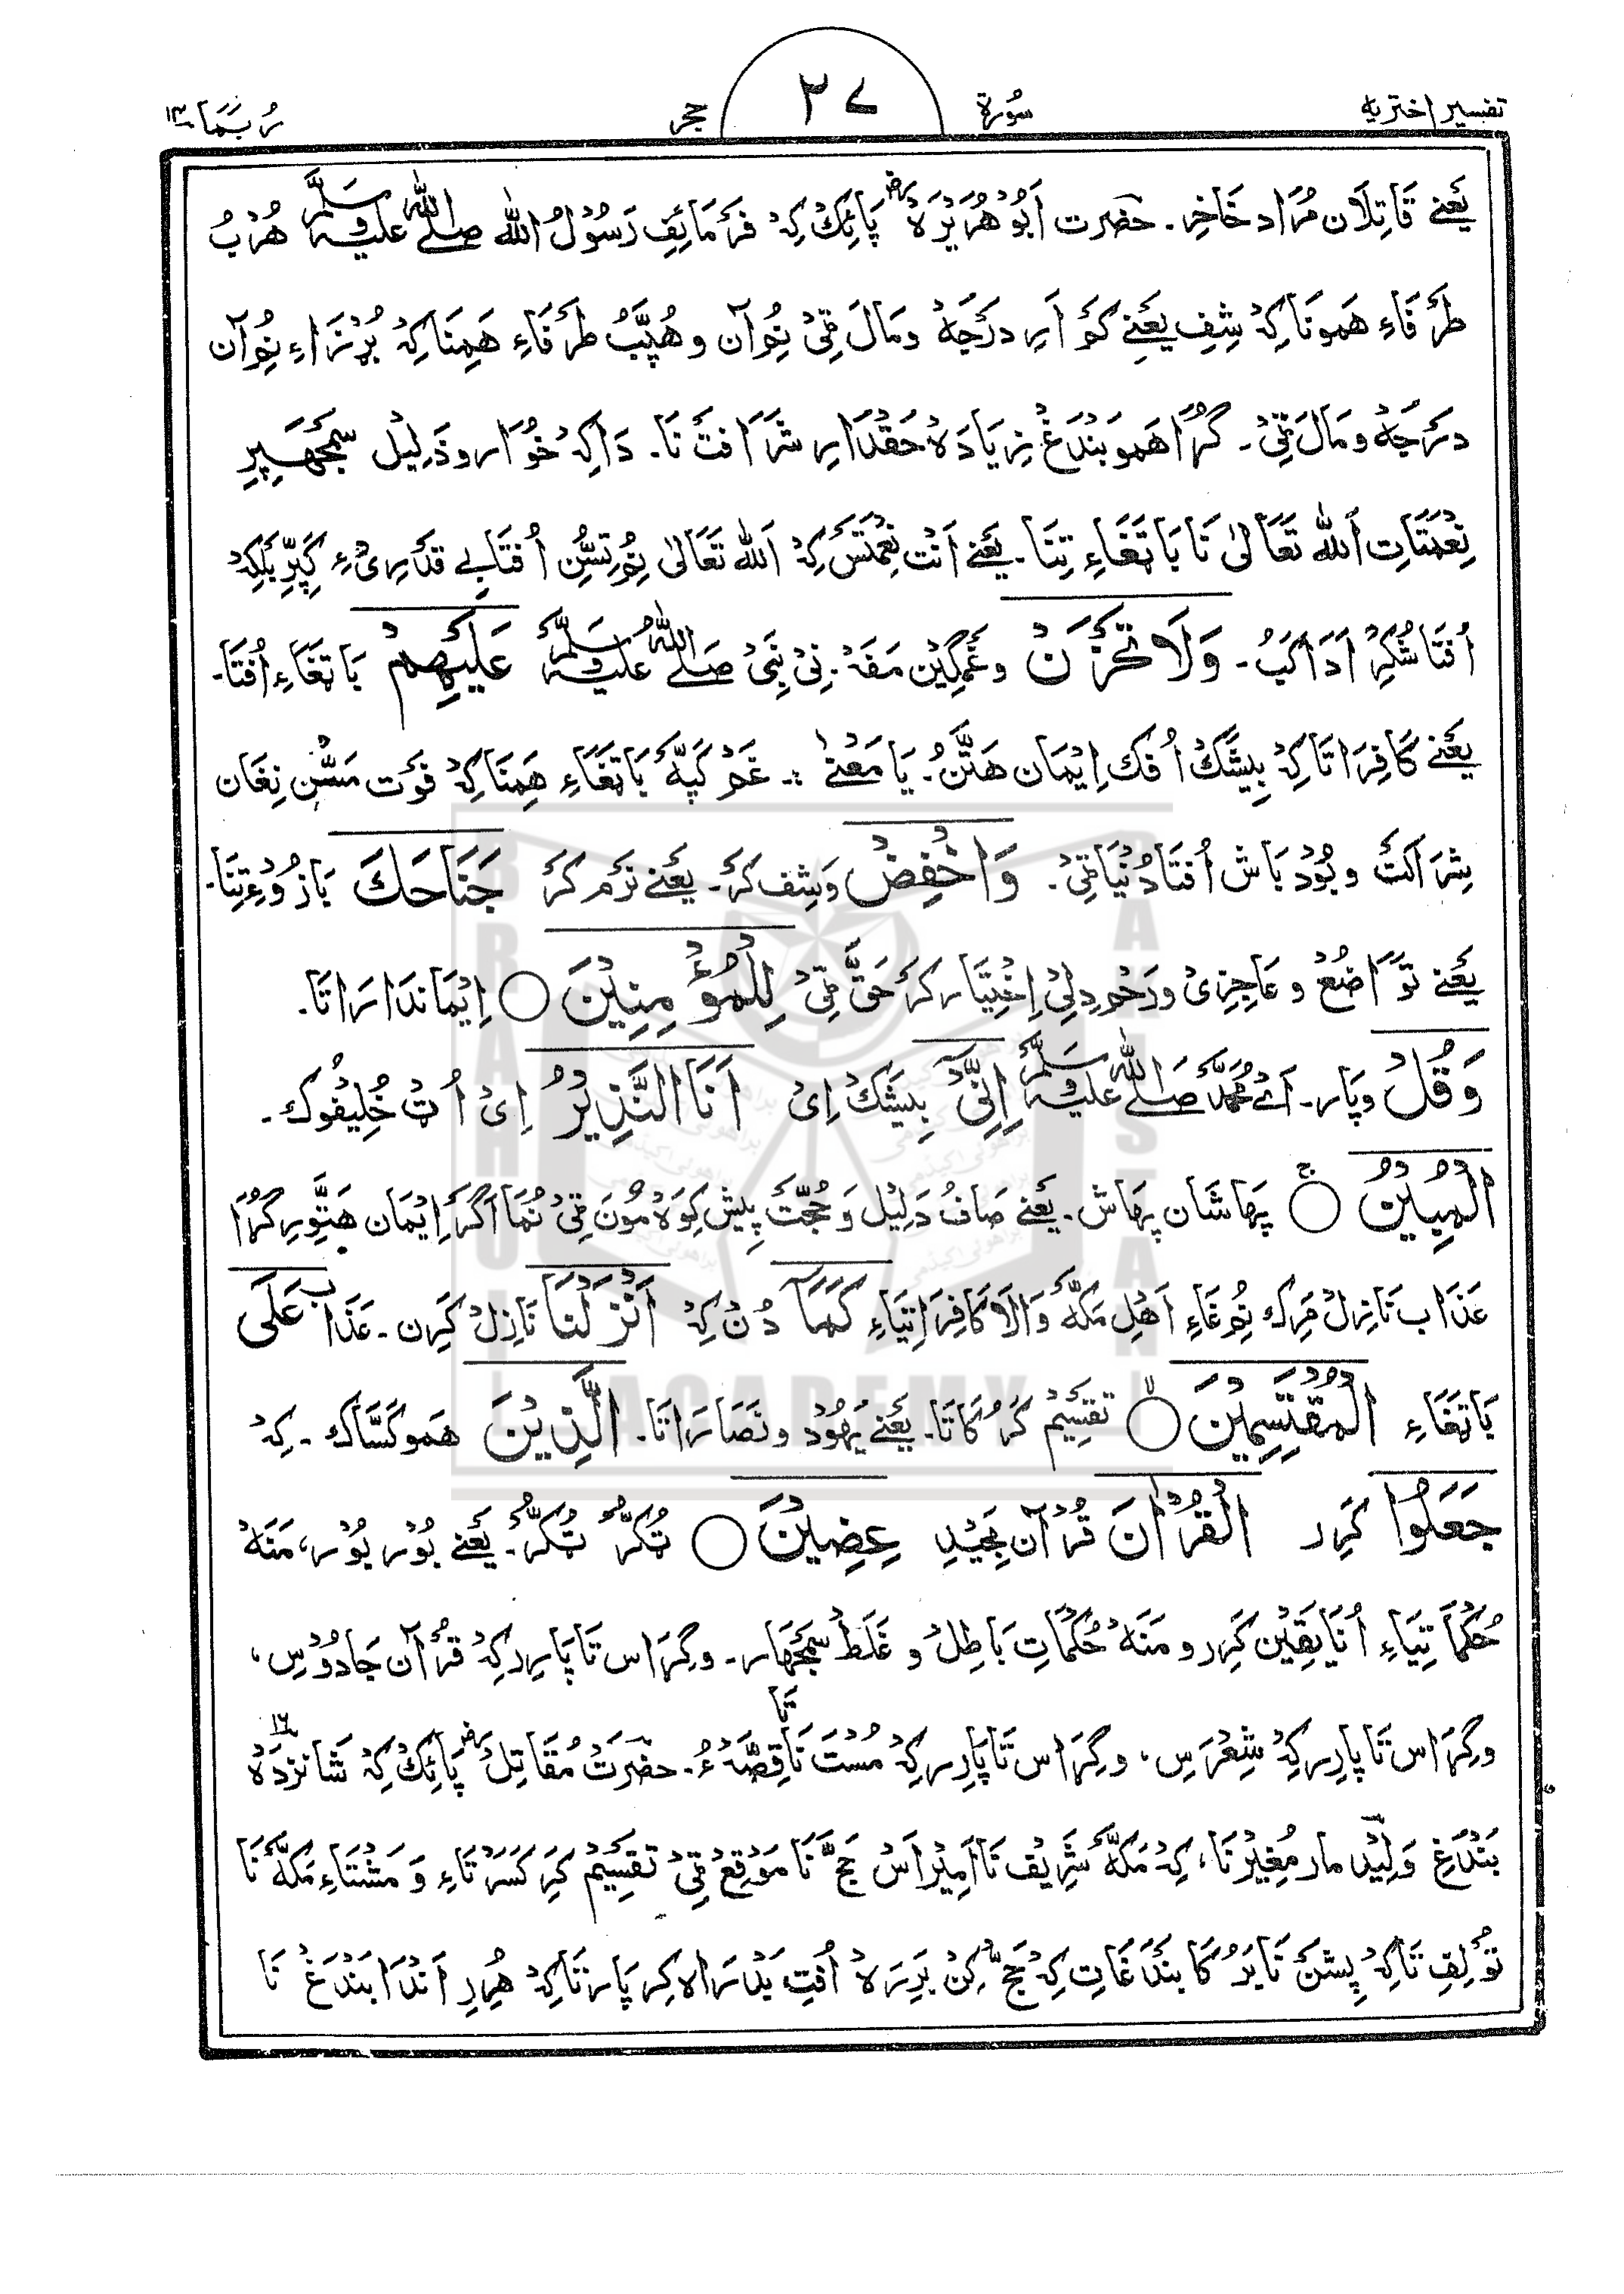 تفسیر اختریه سُورَة ٣٧ حجر رُبَمَا-١٤
یَعنے قَاتِلَان مُرَاد خَاخِر۔ حضرت اَبُوْهُرَیْرَہؓ پَائِکْ کِہْ فَرَمَائِفِ رَسُوْلُ اللّٰه صلے اللّٰه علیه وسلم هُرْبُ
طَرَفَاءِ هَمونَا کِہْ شِفِ یَعنِے کَم اَرِ دَرَجَہْ ومَالَ ٹِیْ نُوآن وهُپَّبُ طَرَفَاءِ هَمِنَا کِہْ بُرْزَاءِ نُوآن
دَرَجَہْ ومَالَ ٹِیْ۔ گُڑَا هَمو بَنْدَغْ زِیَادَہْ حَقْدَارِ شَرَافَتْ نَا۔ دَاکِہْ خُوَار و ذَلِیْل سَمْجَھپِرِ
نِعْمَتَاتِ اَللّٰه تَعَالٰی نَا بَاتَغَاءِ تِنَا۔ یَعنے اَنْت نِعْمَتَس کِہْ اَللّٰه تَعَالٰی نُوتِسُّن اُفتَابے قَدرِیْءِ کِپِرّ بَلکِہْ
اُفتَا شُکُر اَدَا کَبُ۔ وَلَا تَحْزَنْ وغَمگِیْن مَفَہْ۔ نِیْ نَبِیْ صَلے اللّٰه علیه وسلم عَلَیْهِمْ بَاتَغَاءِ اُفتَا۔
یَعنے کَافِرَاتَا کِہْ بِیشَّکْ اُفک اِیْمَان هَتَّنُ۔ یَا مَعْنٰے :۔ غَمْ کَپَہْ بَاتَغَاءِ هَمِنَا کِہْ فَوْت مَسُّن نِغَان
شِرَاکَتْ وبُوْدبَاش اُفتَادُنْیَاٹِیْ۔ وَاخْفِضْ وَشِف کَرْ۔ یَعنے نَرَم کَرْ جَنَاحَكَ بَازُوءِ تِنَا۔
یَعنے تَوَاضُعْ و عَاجِزِیْ ورَحم دِلِیْ اِخْتِیَار کَرْ حَقَّ ٹِیْ لِلْمُؤْمِنِیْنَ ○ اِیْمَاندَارَاتَا۔
وَقُلْ وپَار۔ اَے مُحَمَّد صَلے اللّٰه علیه وسلم اِنِّیْ بِیشَکْ اِیْ اَنَا النَّذِیْرُ اِیْ اُٹ خُلِیفُوک۔
الْمُبِیْنُ ○ۚ پھَاشَان پھَاش۔ یَعنے صَافُ دَلِیْل وَحُجَّتْ پیش کِوَہْ مُوْن ٹِیْ نُمَا اَگَر اِیْمَان هَتَّوِرِ گُڑَا
عَذَاب نَازِلْ مَرِک نُوغَاءِ اَهْلِ مَکَّہْ وَالَا کَافِرَاتِیَاءِ کَمَآ دُنْ کِہْ اَنْزَلْنَا نَازِلْ کَرِن۔ عَذَاب عَلَی
بَاتَغَاءِ الْمُقْتَسِمِیْنَ ○ۙ تَقسِیْم کَرُکَاتَا۔ یَعنے یَهُوْد ونَصَارَاتَا۔ الَّذِیْنَ هَمو کَسَّاک ۔ کِہْ
جَعَلُوا کَرِر الْقُرْاٰنَ قُرْآن مَجِیْدِ عِضِیْنَ ○ ٹُکُّر ٹُکُّر۔ یَعنے بُوْر بُوْر، مَنَہْ
حُکْمَاتِیَاءِ اُنَا یَقِیْن کَرِر و مَنَہْ حُکْمَاتِ بَاطِلْ و غَلَطْ سَمْجَھَار۔ وگِرَاس تَا پَارِر کِہْ قُرْآن جَادُوْسِ،
وگِرَاس تَا پَارِر کِہْ شِعْرَسِ، وگِرَاس تَا پَارِر کِہْ مُسْتَ نَا تَا قِصَّہْ ءُ۔ حضرَتْ مُقَاتِلْؓ پَائِکْ کِہْ شَانزدَہ ١٦
بَنْدَغِ وَلِیْد مار مُغِیْر نَا، کِہْ مَکَّہْ شَرِیْف نَا اَمِیْر اَسْ حَجّ نَا مَوْقِعْ ٹِیْ تَقسِیْم کَرِ کَسَرْتَاءِ وَ مَشْتَاءِ مَکَّہْ نَا
تُوْلِفِ تَاکِہْ پِسَنْ تَا بَرُکَا بَنْدَغَاتِ کِہْ حَجّ کِنْ بَرِرَہْ اُفتِ بَدْرَاہ کِر پَار تَاکِہْ هُرِر اَنْدَا بَنْدَغْ نَا